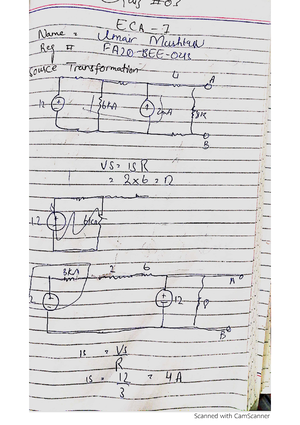 ECA - 7
Name = Umair Mushtaq
Reg # FA20-BEE-043
Source Transformation
4
A
12
6kΩ
2mA
8k
B
Vs = IsR
= 2×6 = 12
12
6kΩ
3kΩ
2
6
A
12
B
Is = Vs
R
Is = 12 = 4 A
3
Scanned with CamScanner